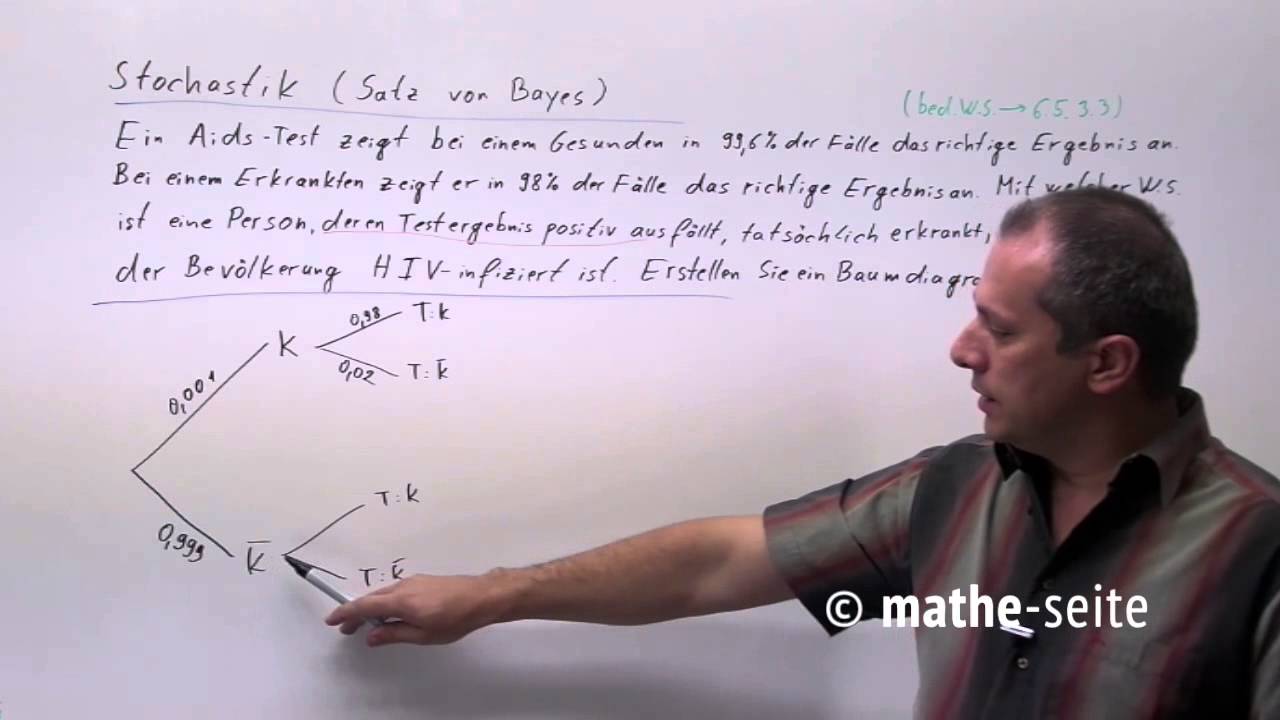 Stochastik (Satz von Bayes)
(bed.W.S. → 6.5.3.3)
Ein Aids-Test zeigt bei einem Gesunden in 99,6% der Fälle das richtige Ergebnis an.
Bei einem Erkrankten zeigt er in 98% der Fälle das richtige Ergebnis an. Mit welcher W.S.
ist eine Person, deren Testergebnis positiv ausfällt, tatsächlich erkrankt,
der Bevölkerung HIV-infiziert ist. Erstellen Sie ein Baumdiagra
0,98 T:k
K
0,02 T:k̄
0,001
T:k
0,999
K̄
T:k̄
© mathe-seite